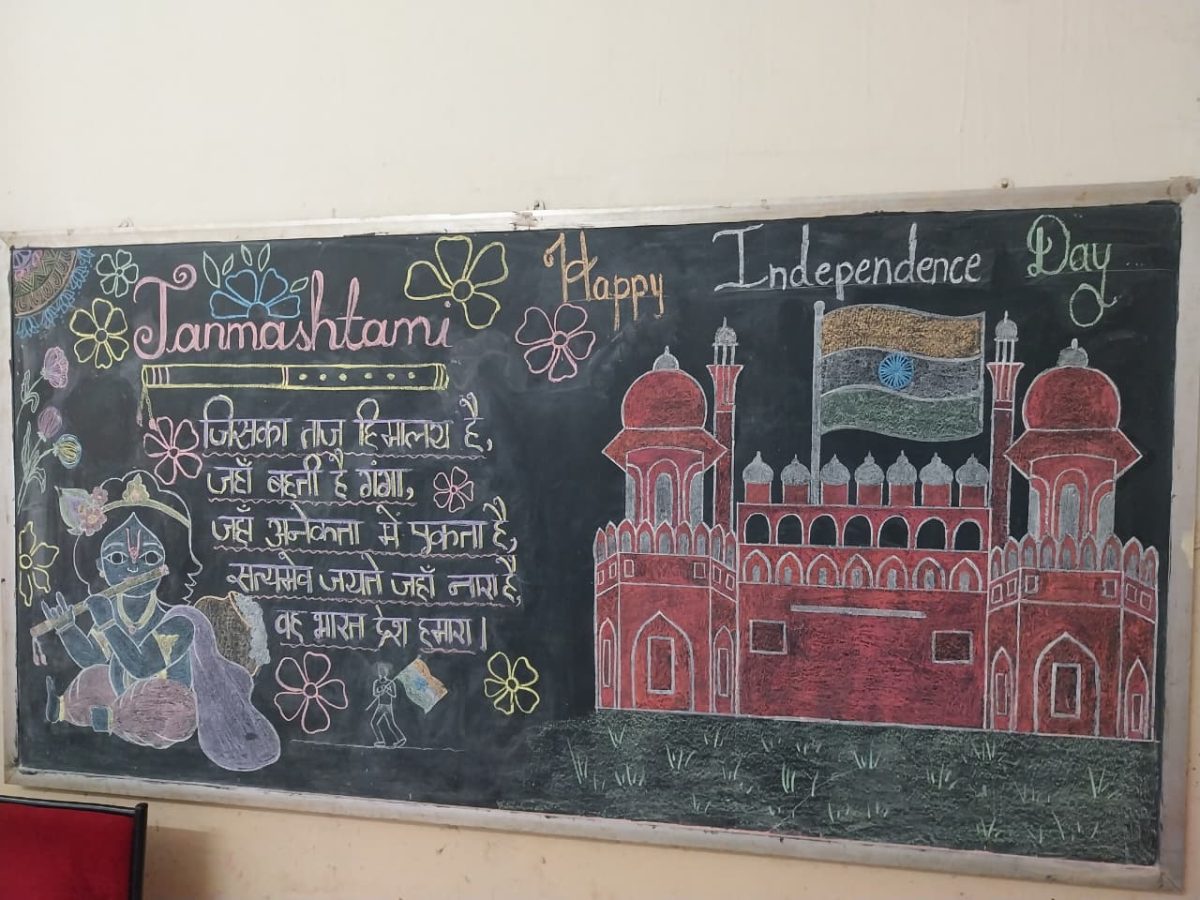 Janmashtami
Happy Independence Day
जिसका ताज हिमालय है,
जहाँ बहती है गंगा,
जहाँ अनेकता में एकता है,
सत्यमेव जयते जहाँ नारा है,
वह भारत देश हमारा।